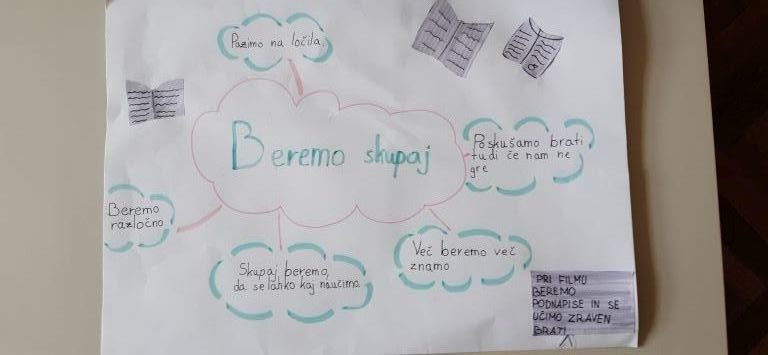 Pazimo na ločila.
Beremo skupaj
Poskušamo brati
tudi če nam ne
gre
Beremo
razločno
Več beremo več
znamo
Skupaj beremo,
da se lahko kaj naučimo.
PRI FILMU
BEREMO
PODNAPISE IN SE
UČIMO ZRAVEN
BRATI